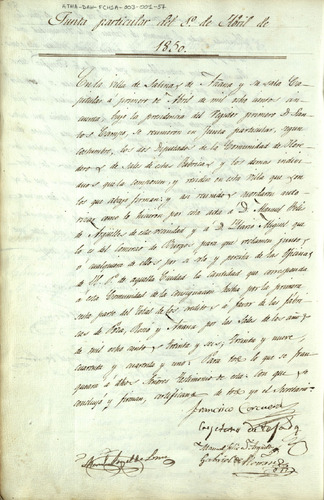 ATHA-DAH-FCHDA-003-001-57
Junta particular del 1º de Abril de
1850.
En la villa de Salinas de Añana y su sala Ca-
pitular a primero de Abril de mil ocho cientos cin-
cuenta: bajo la presidencia del Regidor primero Dn San-
tos Campo, se reunieron en Junta particular, segun
costumbre, los dos Diputados de la Comunidad de Here-
deros de Sales de estas Fabricas y los demas indivi-
duos que la componen, y residen en esta Villa que son
los que abajo firman; y asi reunidos acordaron auto-
rizar como lo hicieron por esta acta a D. Manuel Felix
de Argulles de esta vecindad y a D. Lazaro Miguel que
lo es del Comercio de Burgos para que reclamen juntos
o cualquiera de ellos por si solo y perciba de las Oficinas
de H. P. de aquella Ciudad la Cantidad que corresponda
a esta Comunidad de la Consignacion hecha por la primera
sesta parte del total de los creditos a favor de las fabri-
cas de Poza, Rosio y Añana por las Sales de los años
de mil ocho cientos treinta y seis, treinta y nueve,
cuarenta y cuarenta y uno. Para todo lo que se fran-
queara a dhos Señores Testimonio de esta. Con que se
concluyó y firman, certificando de todo yo el Secretario
Francisco
Cayetano de Tejada
Manuel Felix de Argulles
Gabriel de